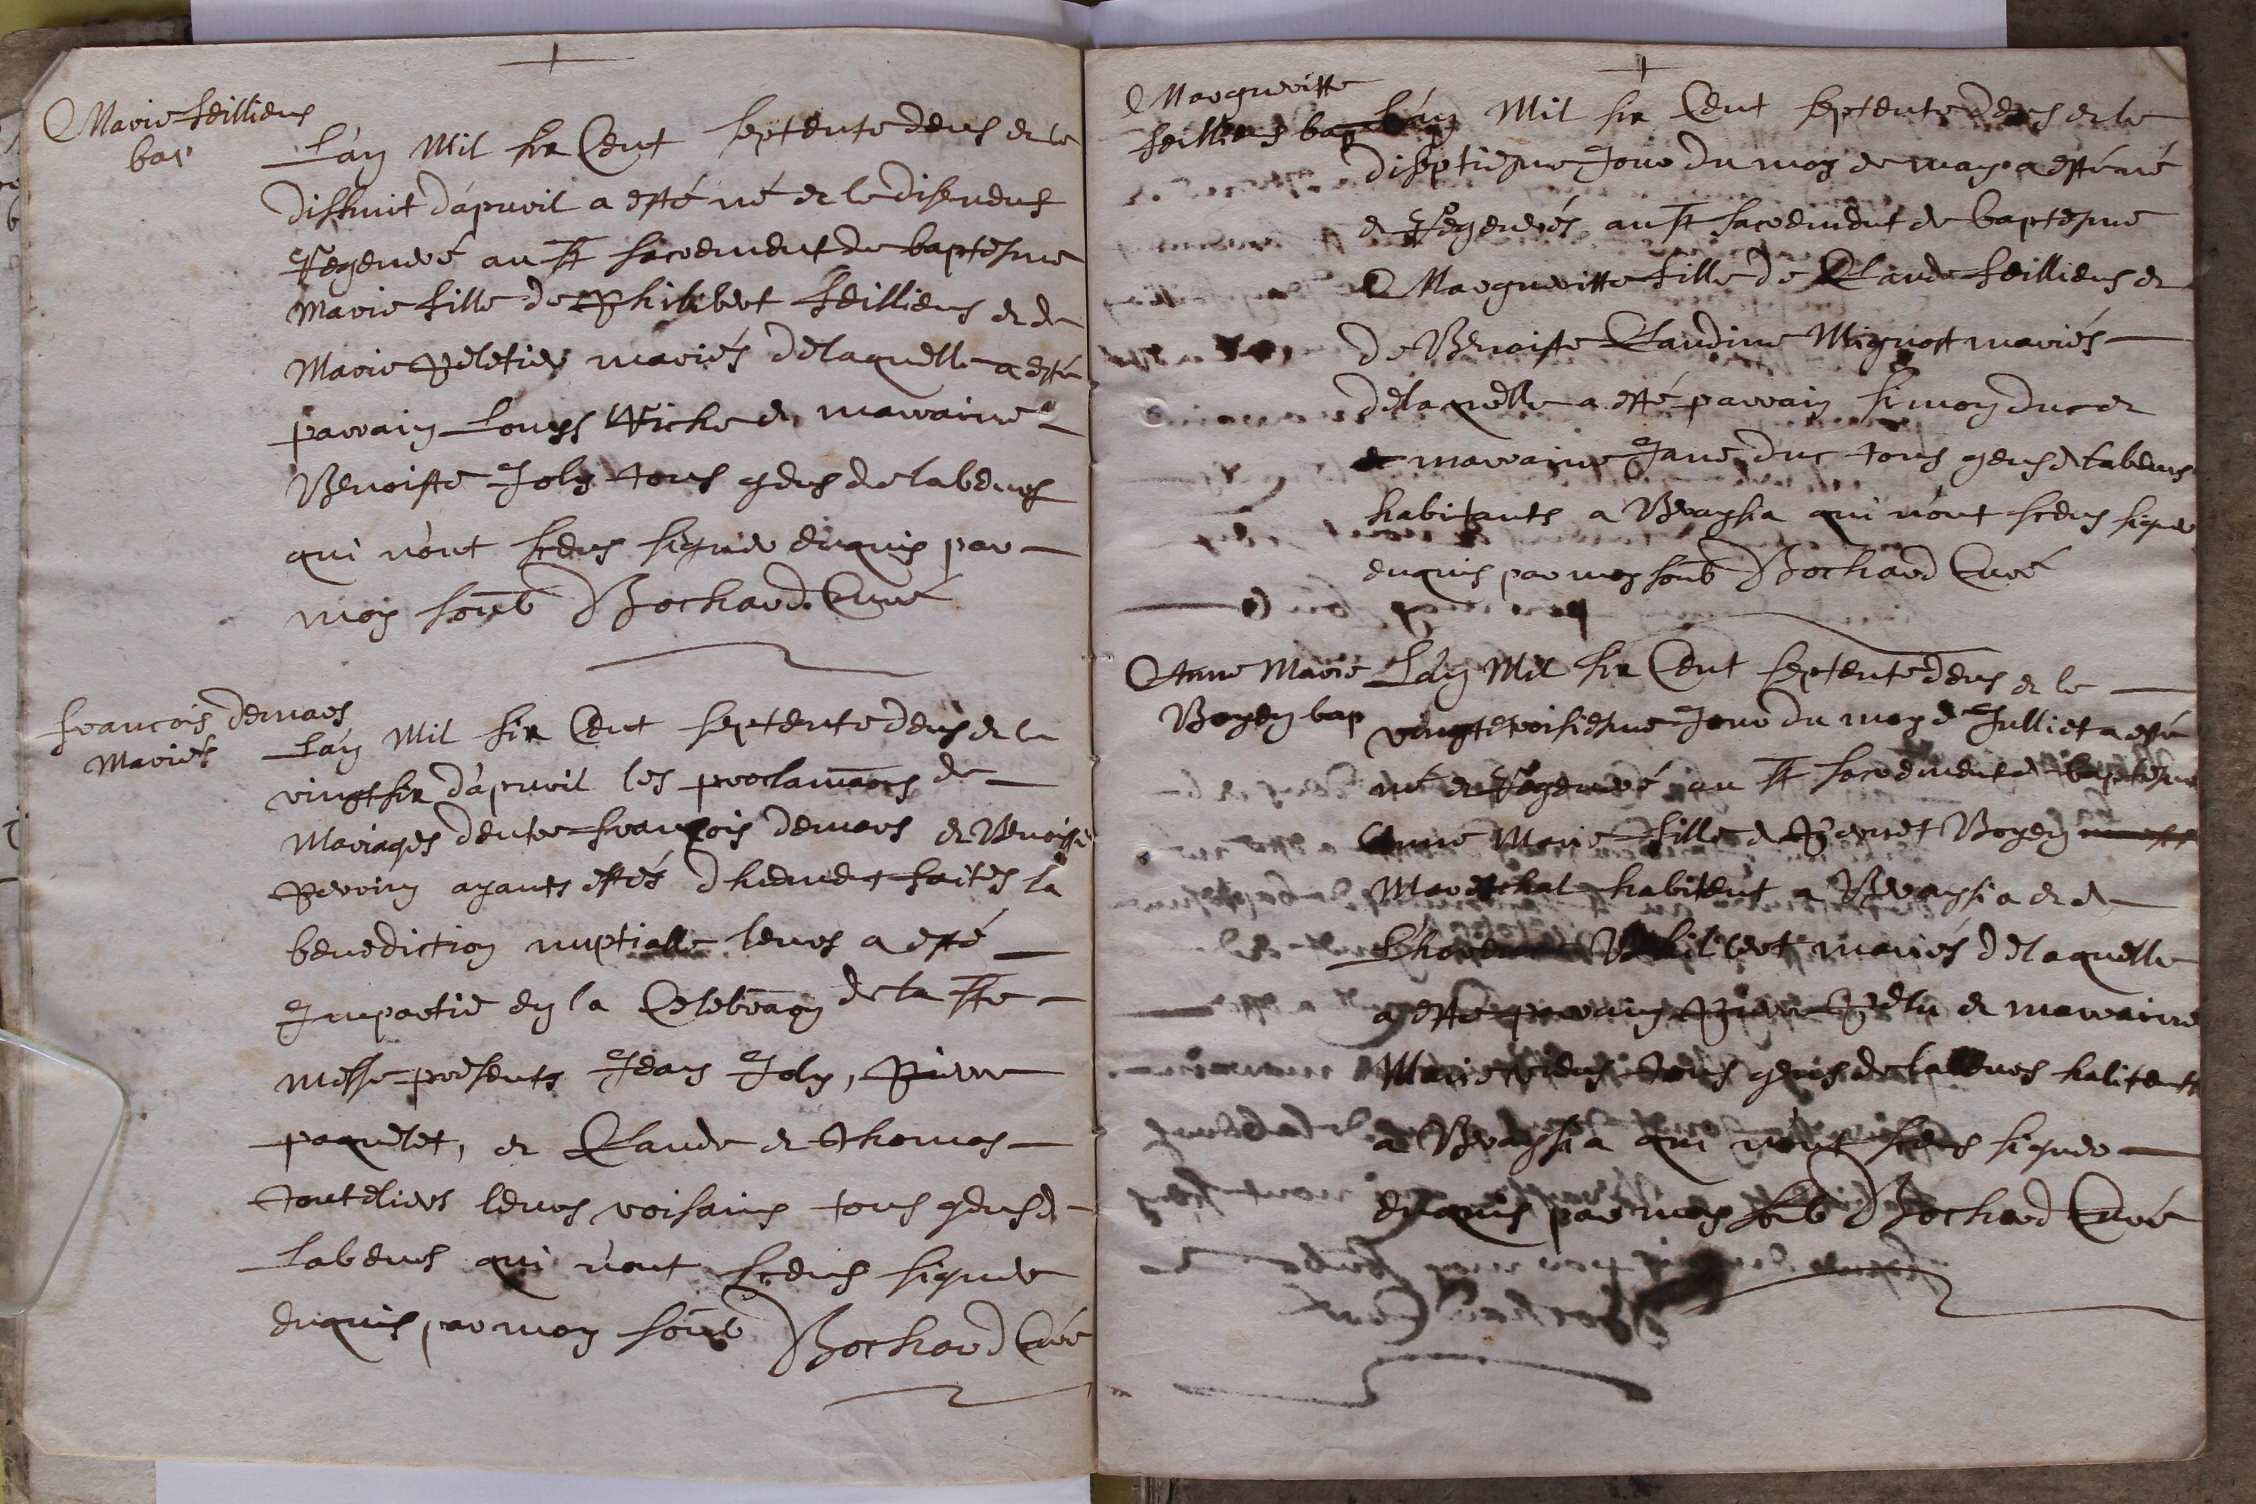 Marie feilliens
bap
L'an Mil six Cent septente deus et le
dishuit d'apvril a esté né et le diseneus
Regeneré au st sacrement de baptesme
Marie fille de Philibert feilliens et de
Marie Peletier mariés de laquelle a esté
parrain Louys Wiche et marraine
Benoiste Joly tous gens de labeurs
qui n'ont sceus signer enquis par
moy soub Bochard Curé
francois demars
Mariés
L'an Mil six Cent septente deus et le
vingt six d'apvril les proclamaons de
Mariages d'entre francois demars et Benoiste
Perrin ayants estés dheuemt faites la
benediction nuptialle leurs a esté
Impartie en la Celebraon de la ste
messe presents Jean Joly, Pierre
paquelet, et Claude et Thomas
touteliers leurs voisains tous gens de
labeurs qui n'ont sceus signer
enquis par moy soub Bochard Curé
Margueritte
feilliens bap
L'an Mil six Cent septente deus et le
diseptiesme Jour du moy de may a esté né
et Regenerés au st sacrement de baptesme
Margueritte fille de Claude feilliens et
de Benoiste Claudine Mignost mariés
de laquelle a esté parrain simon duc et
et marraine Jane duc tous gens de labeurs
habitants a Bragsia qui n'ont sceus signer
enquis par moy soub Bochard Curé
Anne Marie
Boyen bap
L'an Mil six Cent septente deus et le
vingtetroisiesme Jour du moy de Julliet a esté
né et Regeneré au st sacrement de baptesme
Anne Marie fille de Pernet Boyen
Mareschal habitent a Bragsia et de
Philibert mariés de laquelle
a esté parrain Pierre Petu et marraine
Marie tous gens de labeurs habitents
a Bragsia qui n'ont sceus signer
enquis par moy soub Bochard Curé